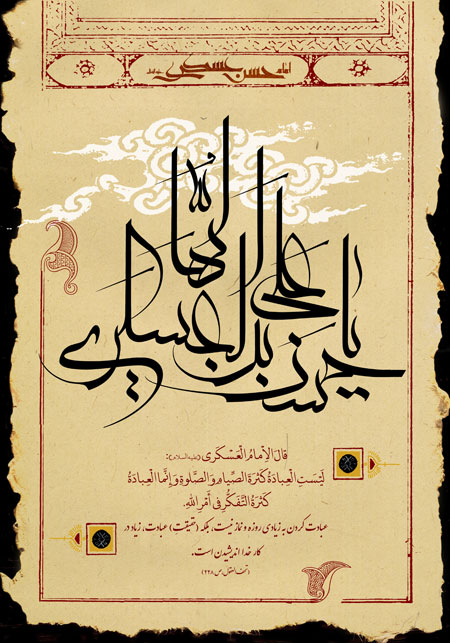 امام حسن عسکری
یا حسن بن علی ایها العسکری
قالَ الْإمامُ الْعَسْکَری (علیه‌السلام):
لَیْسَتِ الْعِبادَةُ کَثْرَةَ الصِّیامِ وَ الصَّلوةِ وَ إنَّما الْعِبادَةُ
کَثْرَةُ التَّفَکُّرِ فی أمْرِ اللهِ.
عبادت کردن به زیادی روزه و نماز نیست، بلکه (حقیقت) عبادت، زیاد در
کار خدا اندیشیدن است.
(تحف‌العقول، ص ۴۴۸)